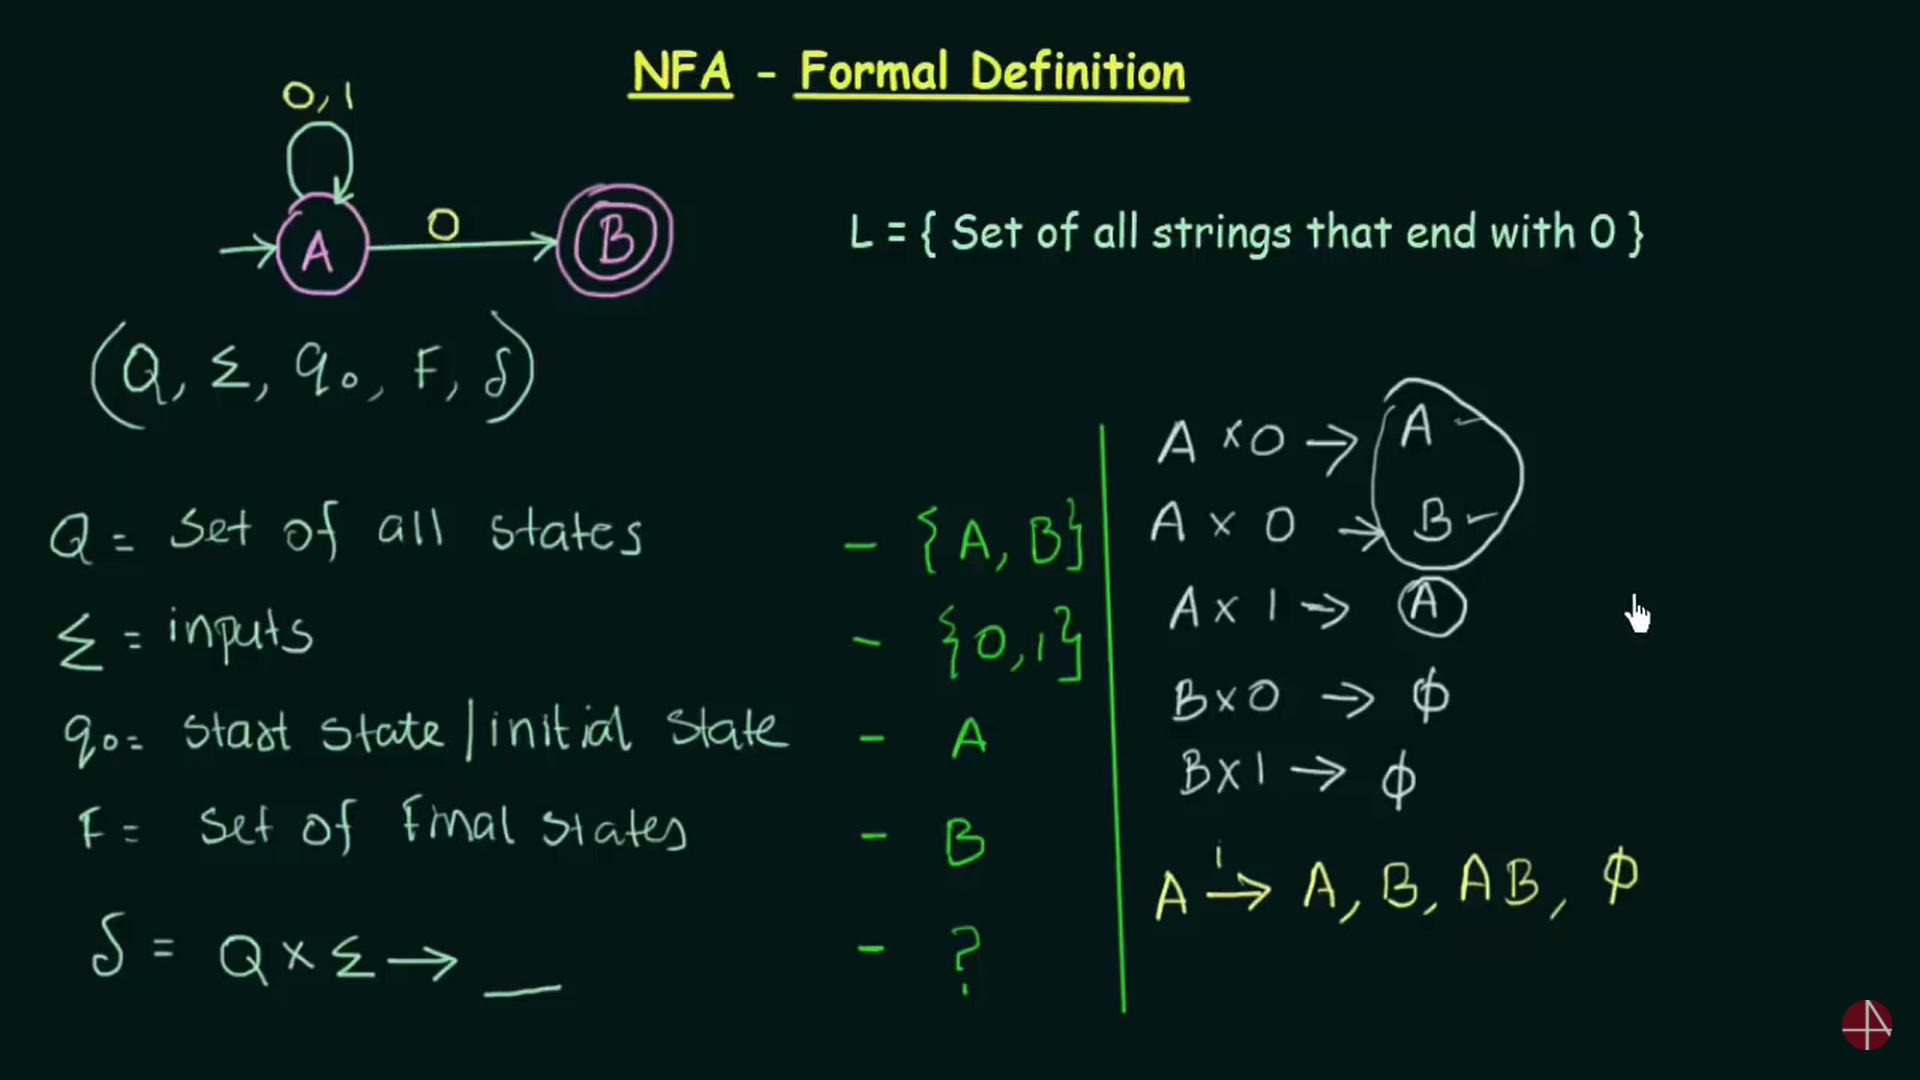 NFA - Formal Definition
0, 1
A
0
B
L = { Set of all strings that end with 0 }
(Q, Σ, q₀, F, δ)
Q = Set of all states - {A, B}
Σ = inputs - {0, 1}
q₀ = Start state / initial state - A
F = Set of Final states - B
δ = Q × Σ → __ - ?
A × 0 → A
A × 0 → B
A × 1 → A
B × 0 → ϕ
B × 1 → ϕ
A 1→ A, B, AB, ϕ